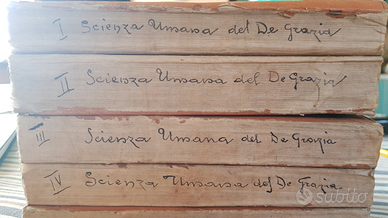 I Scienza Umana del De Grazia
II Scienza Umana del De Grazia
III Scienza Umana del De Grazia
IV Scienza Umana del De Grazia
subito